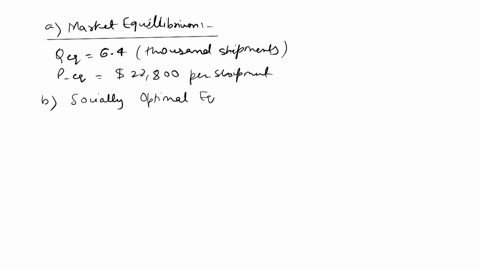 a) Market Equillibrium:-
Qeq = 6.4 (thousand shipments)
P_eq = $ 22,800 per shipment
b) Socially Optimal Eq